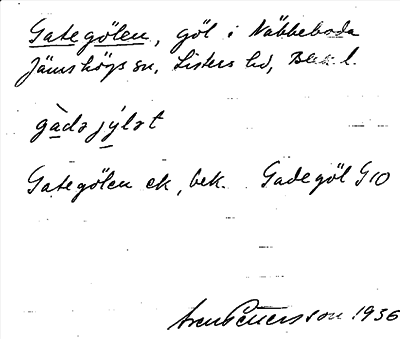 Gategölen, göl i Näbbeboda
Jämshögs sn, Listers hd, Blek. l.
gàdəjýlət
Gategölen ek, bek. Gadegöl G10
Sven Pettersson 1936